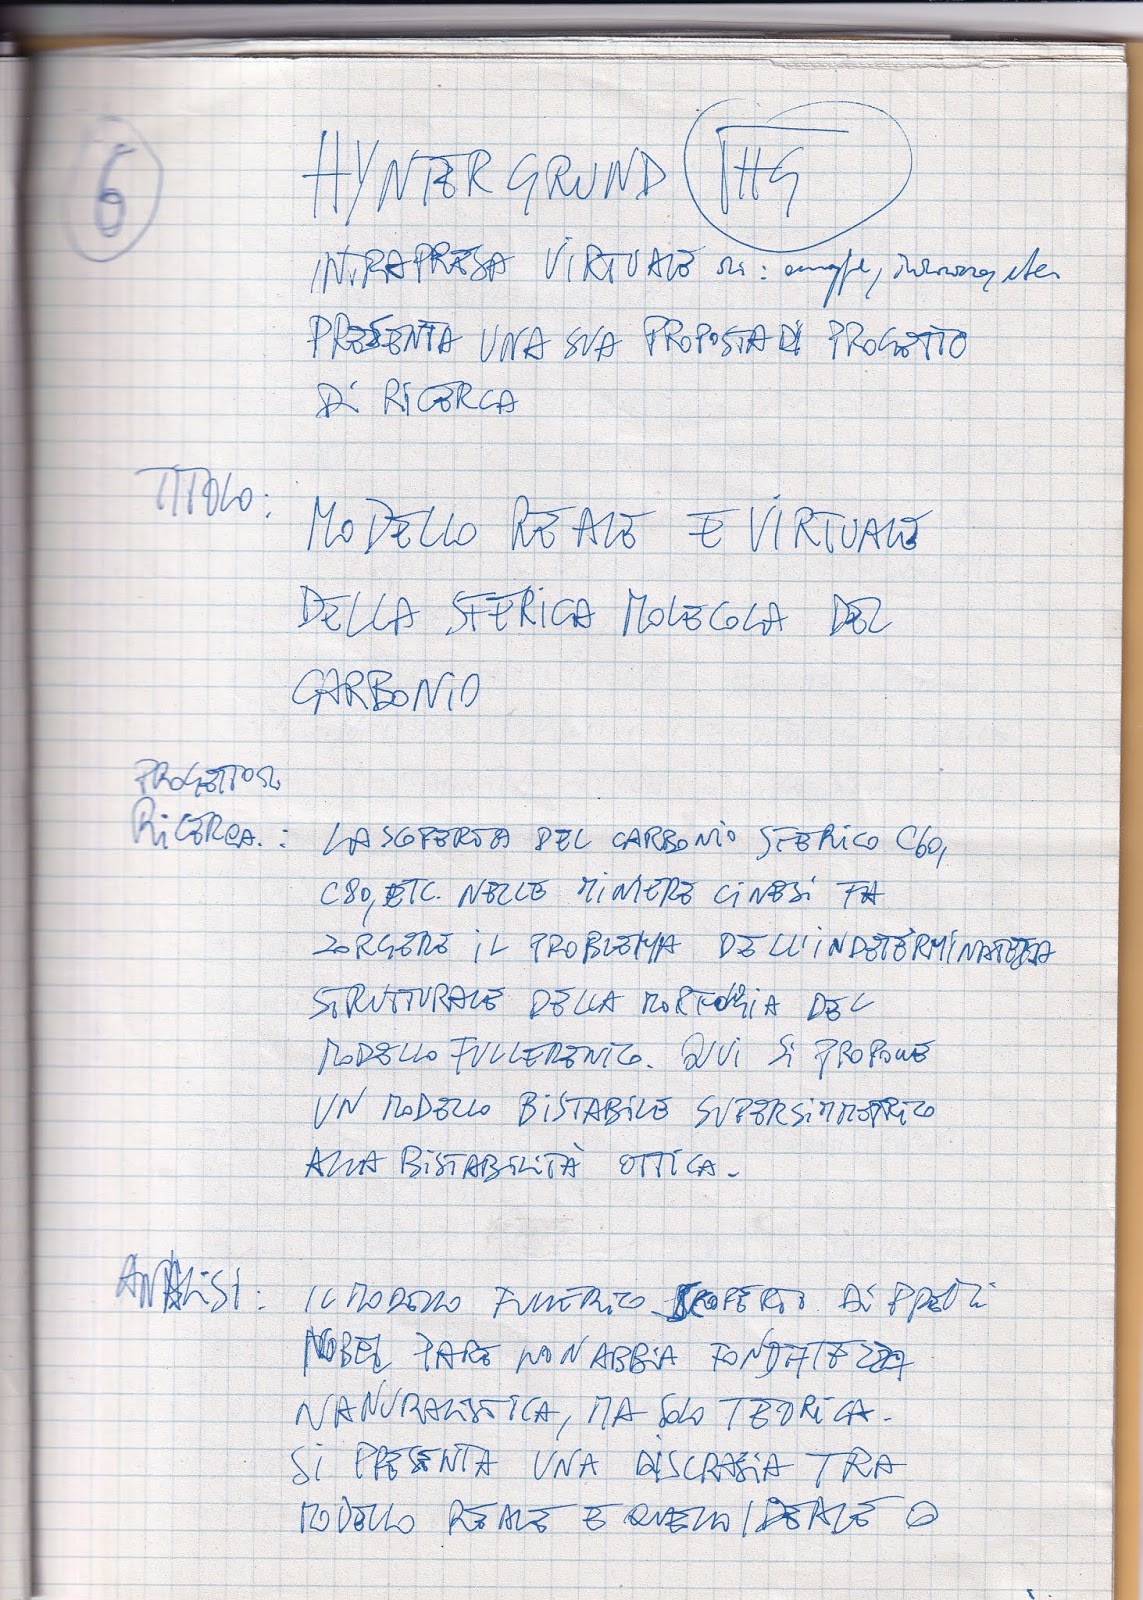 6
HYNTERGRUND HG
INTRAPRESA VIRTUALE DI:
PRESENTA UNA SUA PROPOSTA DI PROGETTO
DI RICERCA
TITOLO: MODELLO REALE E VIRTUALE
DELLA SFERICA MOLECOLA DEL
CARBONIO
PROGETTO DI
RICERCA.: LA SCOPERTA DEL CARBONIO SFERICO C60,
C80, ETC. NELLE MINIERE CINESI FA
SORGERE IL PROBLEMA DELL'INDETERMINATEZZA
STRUTTURALE DELLA MORFOLOGIA DEL
MODELLO FULLERENICO. QUI SI PROPONE
UN MODELLO BISTABILE SUPERSIMMETRICO
ALLA BISTABILITÀ OTTICA.
ANALISI: IL MODELLO FULLERICO SCOPERTO DI PREMI
NOBEL PARE NON ABBIA FONDATEZZA
NANURALISTICA, MA SOLO TEORICA.
SI PRESENTA UNA DISCRASIA TRA
MODELLO REALE E QUELLO IDEALE O